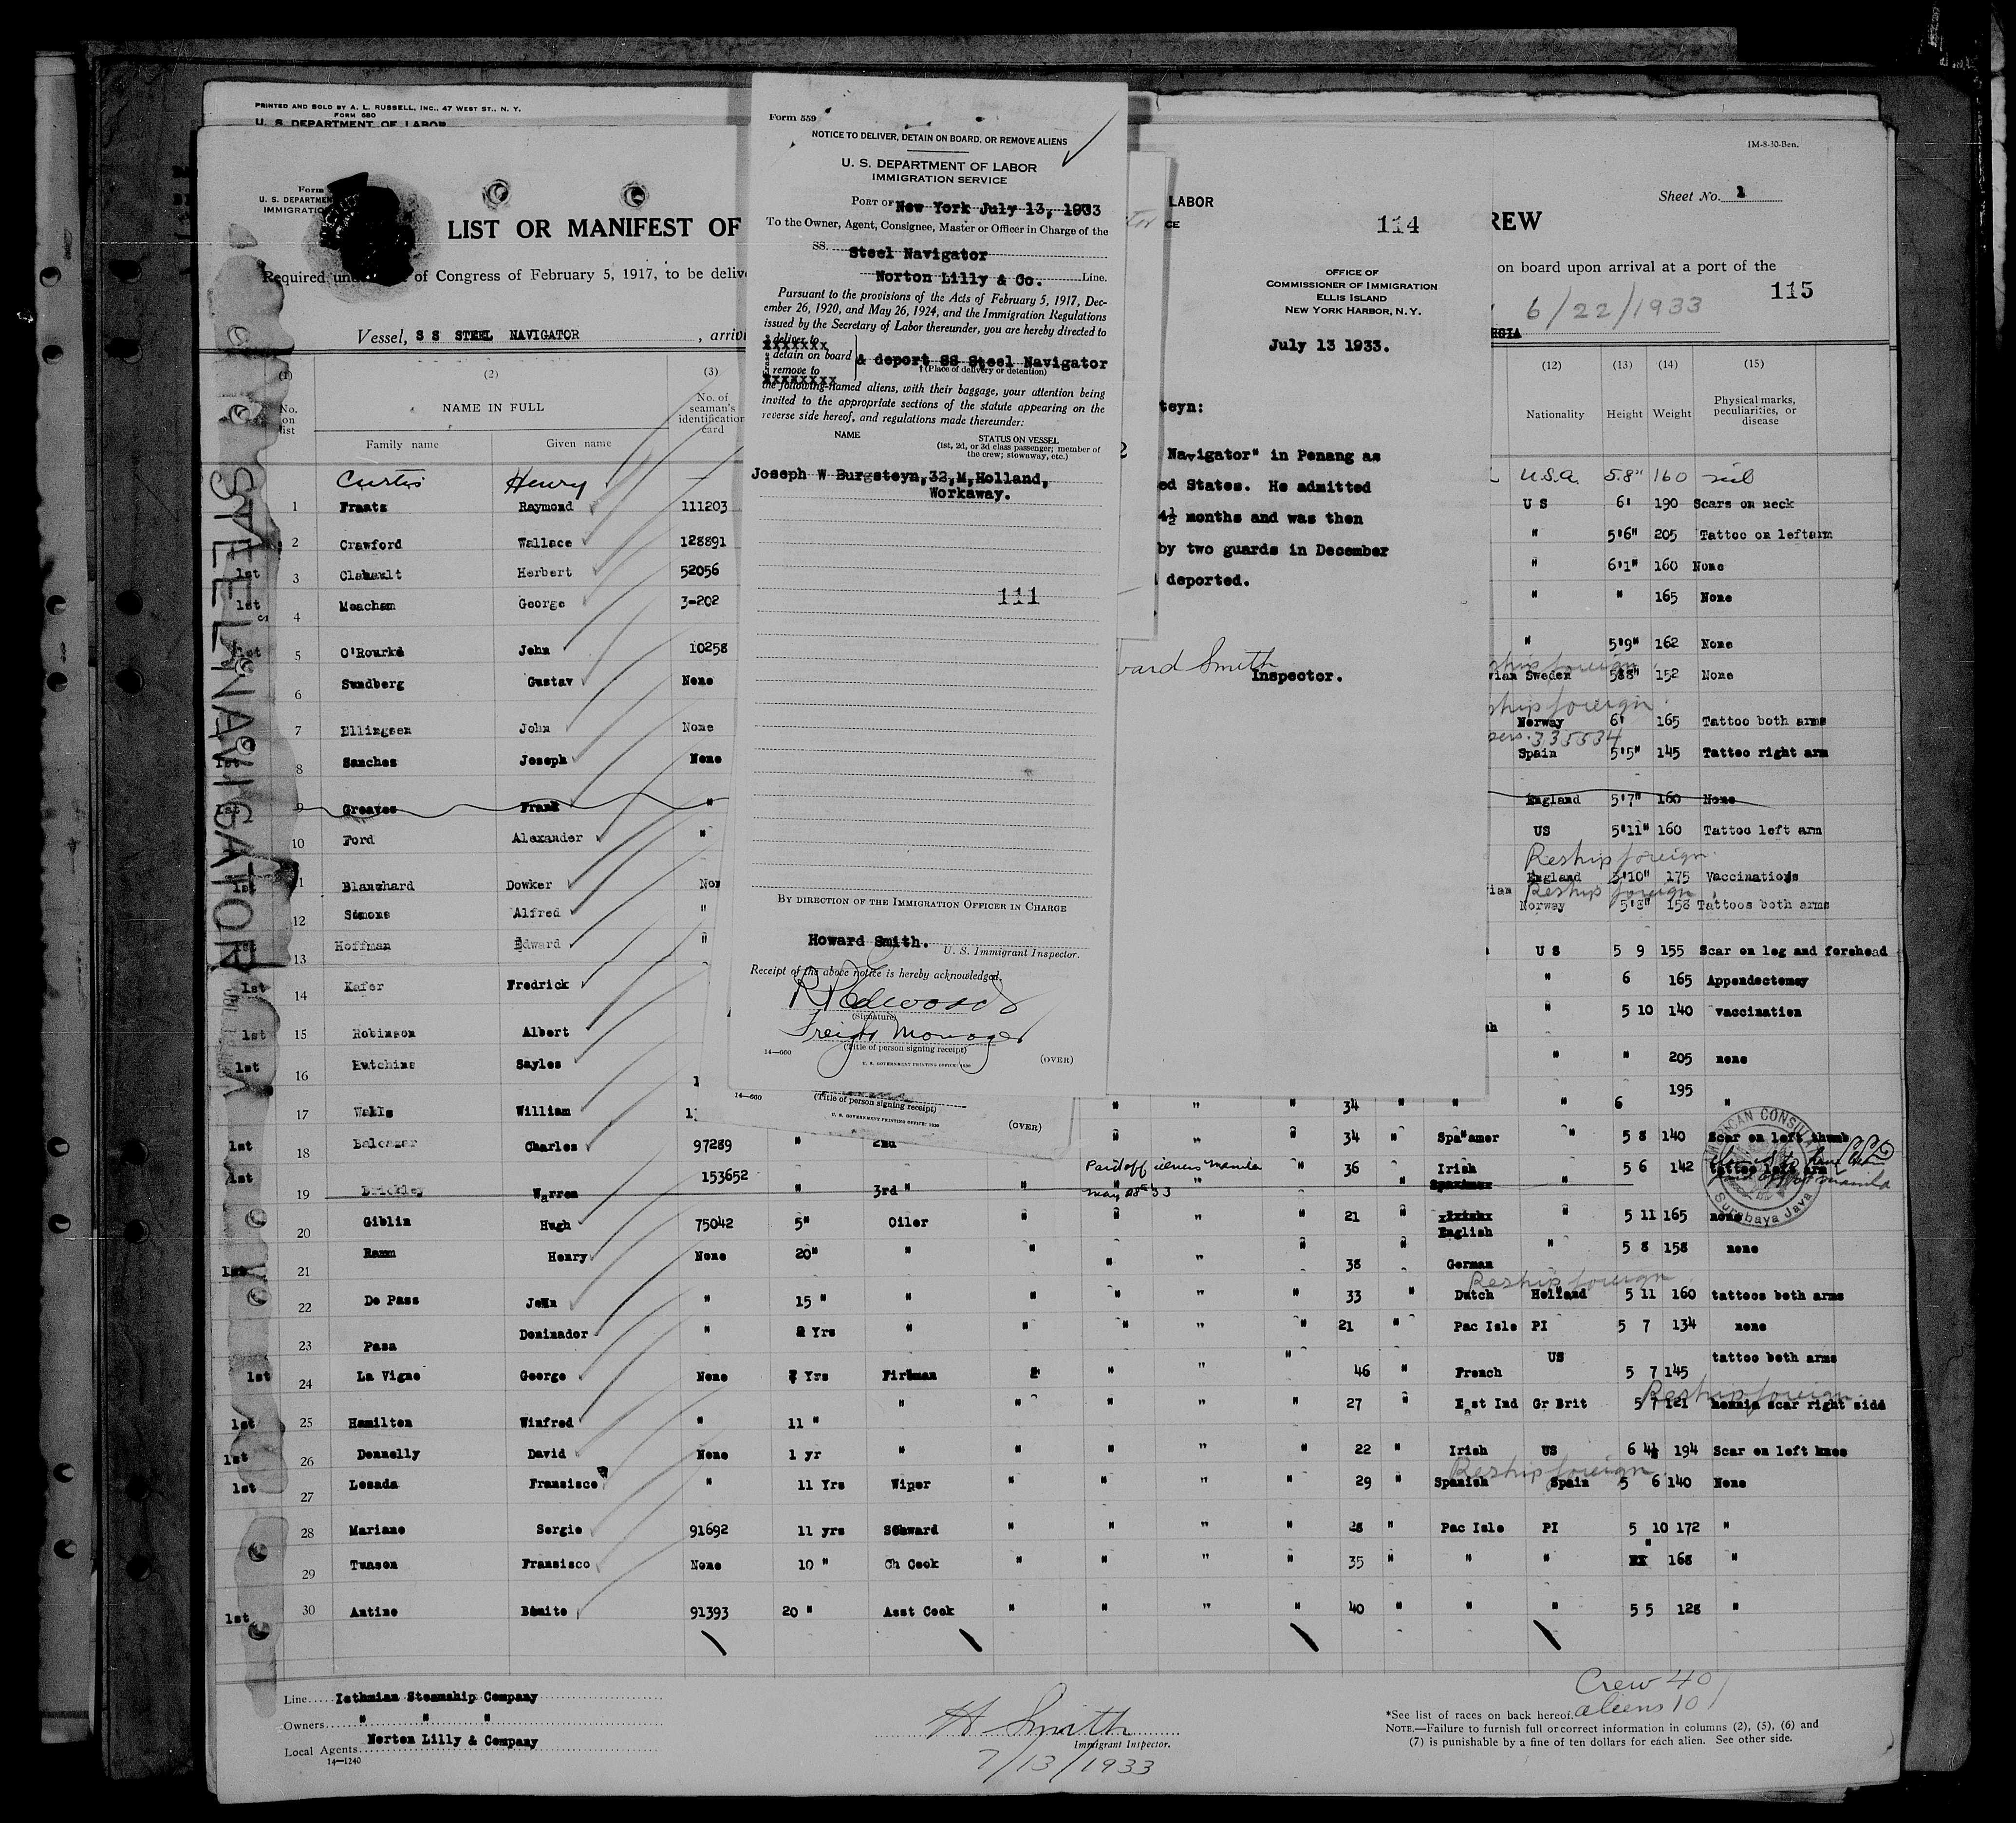 PRINTED AND SOLD BY A. L. RUSSELL, INC., 47 WEST ST., N. Y.
FORM 680
U. S. DEPARTMENT OF LABOR
Form
U. S. DEPARTMEN
IMMIGRATIO
LIST OR MANIFEST OF
Required und of Congress of February 5, 1917, to be delive
Vessel, S S STEEL NAVIGATOR, arrivi
STEEL NAVIGATOR
(1) (2) (3)
No. on list
NAME IN FULL
Family name Given name
No. of seaman's identification card
Curtis Henry —
1 Fraatz Raymond 111203
2 Crawford Wallace 128891
1st 3 Clabault Herbert 52056
1st 4 Meacham George 3-202
1st 5 O'Rourke John 10258
6 Sundberg Gustav None
7 Ellingsen John None
1st 8 Sanches Joseph None
1st 9 Greaves Frank "
10 Ford Alexander "
1st 11 Blanchard Dowker Non
12 Simons Alfred "
1st 13 Hoffman Edward "
1st 14 Kafer Fredrick
1st 15 Robinson Albert
1st 16 Hutchins Sayles
17 Walls William 1
1st 18 Balcazar Charles 97289 " 2nd " " " 34 " Spa"amer " 5 8 140 Scar on left thumb
1st 19 Brickley Warren 153652 " 3rd " " Paid off illness Manila May 28th 33 " 36 " Irish " 5 6 142 tattoo left arm
20 Giblin Hugh 75042 5" Oiler " " " " 21 " English " 5 11 165 none
1st 21 Ramm Henry None 20" " " " " " 38 " German " 5 8 158 none
Reship foreign
22 De Pass John " 15 " " " " " " 33 " Dutch Holland 5 11 160 tattoos both arms
23 Pasa Dominador " 2 Yrs " " " " " 21 " Pac Isle PI 5 7 134 none
1st 24 La Vigne George None 7 Yrs Fireman " " " " 46 " French US 5 7 145 tattoo both arms
Reship foreign
1st 25 Hamilton Winfred " 11 " " " " " " 27 " East Ind Gr Brit 5 7 121 hernia scar right side
1st 26 Donnelly David None 1 yr " " " " " 22 " Irish US 6 4½ 194 Scar on left knee
Reship foreign
1st 27 Losada Fransisco " 11 Yrs Wiper " " " " 29 " Spanish Spain 5 6 140 None
28 Mariano Sergio 91692 11 yrs Steward " " " " 28 " Pac Isle PI 5 10 172 "
29 Tunson Fransisco None 10 " Ch Cook " " " " 35 " " " " 168 "
1st 30 Antino Benito 91393 20 " Asst Cook " " " " 40 " " " 5 5 128 "
Line..... Isthmian Steamship Company
Owners " " "
Local Agents Norton Lilly & Company
14—1240
H Smith
Immigrant Inspector.
7/13/1933
Crew 40
aliens 10
*See list of races on back hereof.
NOTE.—Failure to furnish full or correct information in columns (2), (5), (6) and
(7) is punishable by a fine of ten dollars for each alien. See other side.
Form 559
NOTICE TO DELIVER, DETAIN ON BOARD, OR REMOVE ALIENS
U. S. DEPARTMENT OF LABOR
IMMIGRATION SERVICE
PORT OF New York July 13, 1933
To the Owner, Agent, Consignee, Master or Officer in Charge of the
SS. Steel Navigator
Norton Lilly & Co. Line.
Pursuant to the provisions of the Acts of February 5, 1917, Dec-
ember 26, 1920, and May 26, 1924, and the Immigration Regulations
issued by the Secretary of Labor thereunder, you are hereby directed to
deliver to
xxxxxxx
detain on board & deport SS Steel Navigator
remove to †(Place of delivery or detention)
xxxxxxxx
the following-named aliens, with their baggage, your attention being
invited to the appropriate sections of the statute appearing on the
reverse side hereof, and regulations made thereunder:
NAME STATUS ON VESSEL
(1st, 2d, or 3d class passenger; member of
the crew; stowaway, etc.)
Joseph W Burgsteyn,32,M,Holland,
Workaway.
111
BY DIRECTION OF THE IMMIGRATION OFFICER IN CHARGE
Howard Smith.
U. S. Immigrant Inspector.
Receipt of the above notice is hereby acknowledged.
(Signature)
Freight Manager
(Title of person signing receipt)
14—660 U. S. GOVERNMENT PRINTING OFFICE: 1930 (OVER)
14—660 (Title of person signing receipt)
U. S. GOVERNMENT PRINTING OFFICE: 1930
(OVER)
LABOR
CE
114
OFFICE OF
COMMISSIONER OF IMMIGRATION
ELLIS ISLAND
NEW YORK HARBOR, N. Y.
July 13 1933.
teyn:
Navigator" in Penang as
ed States. He admitted
4½ months and was then
by two guards in December
deported.
ward Smith
Inspector.
1M-8-30-Ben.
Sheet No. 1
REW
on board upon arrival at a port of the
115
6/22/1933
RGIA
(12) (13) (14) (15)
Nationality Height Weight Physical marks, peculiarities, or disease
U.S.A. 5.8" 160 nil
U S 6' 190 Scars on neck
" 5'6" 205 Tattoo on leftarm
" 6'1" 160 None
" " 165 None
" 5'9" 162 None
ship foreign
vian Sweden 5'8" 152 None
ship foreign
Norway 6' 165 Tattoo both arms
pers. 335534
Spain 5'5" 145 Tattoo right arm
England 5'7" 160 None
US 5'11" 160 Tattoo left arm
Reship foreign
England 5'10" 175 Vaccinations
Reship foreign
ian Norway 5'8" 158 Tattoos both arms
U S 5 9 155 Scar on leg and forehead
" 6 165 Appendectomey
" 5 10 140 vaccination
" " 205 none
195
" " 34 " " " 6 "
AMERICAN CONSULA
Surabaya Java